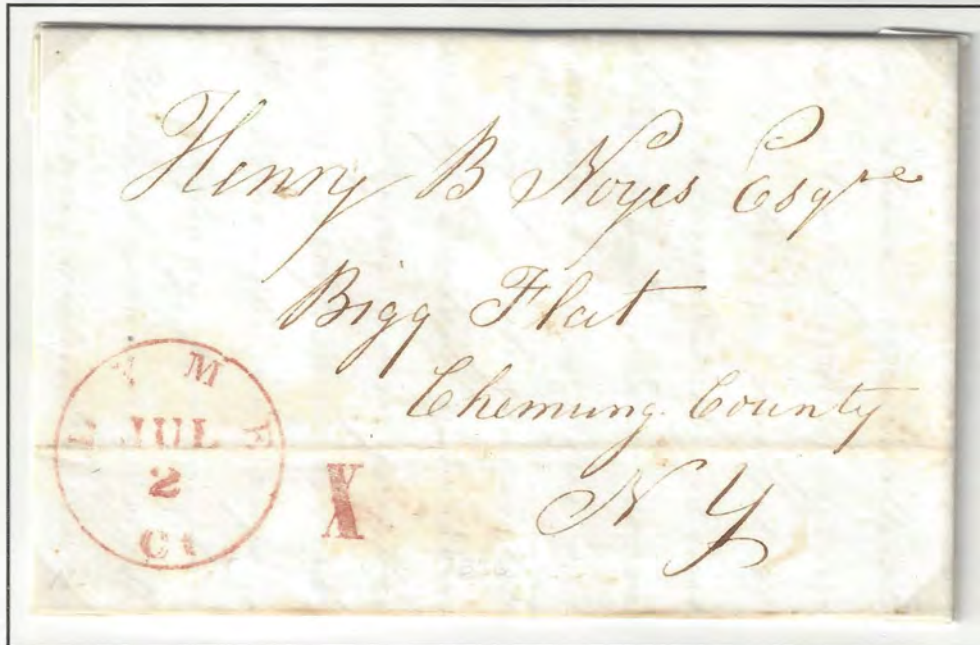 Henry B Noyes Esqre
Bigg Flat
Chemung County
N Y
LYME
JUL
2
CT
X